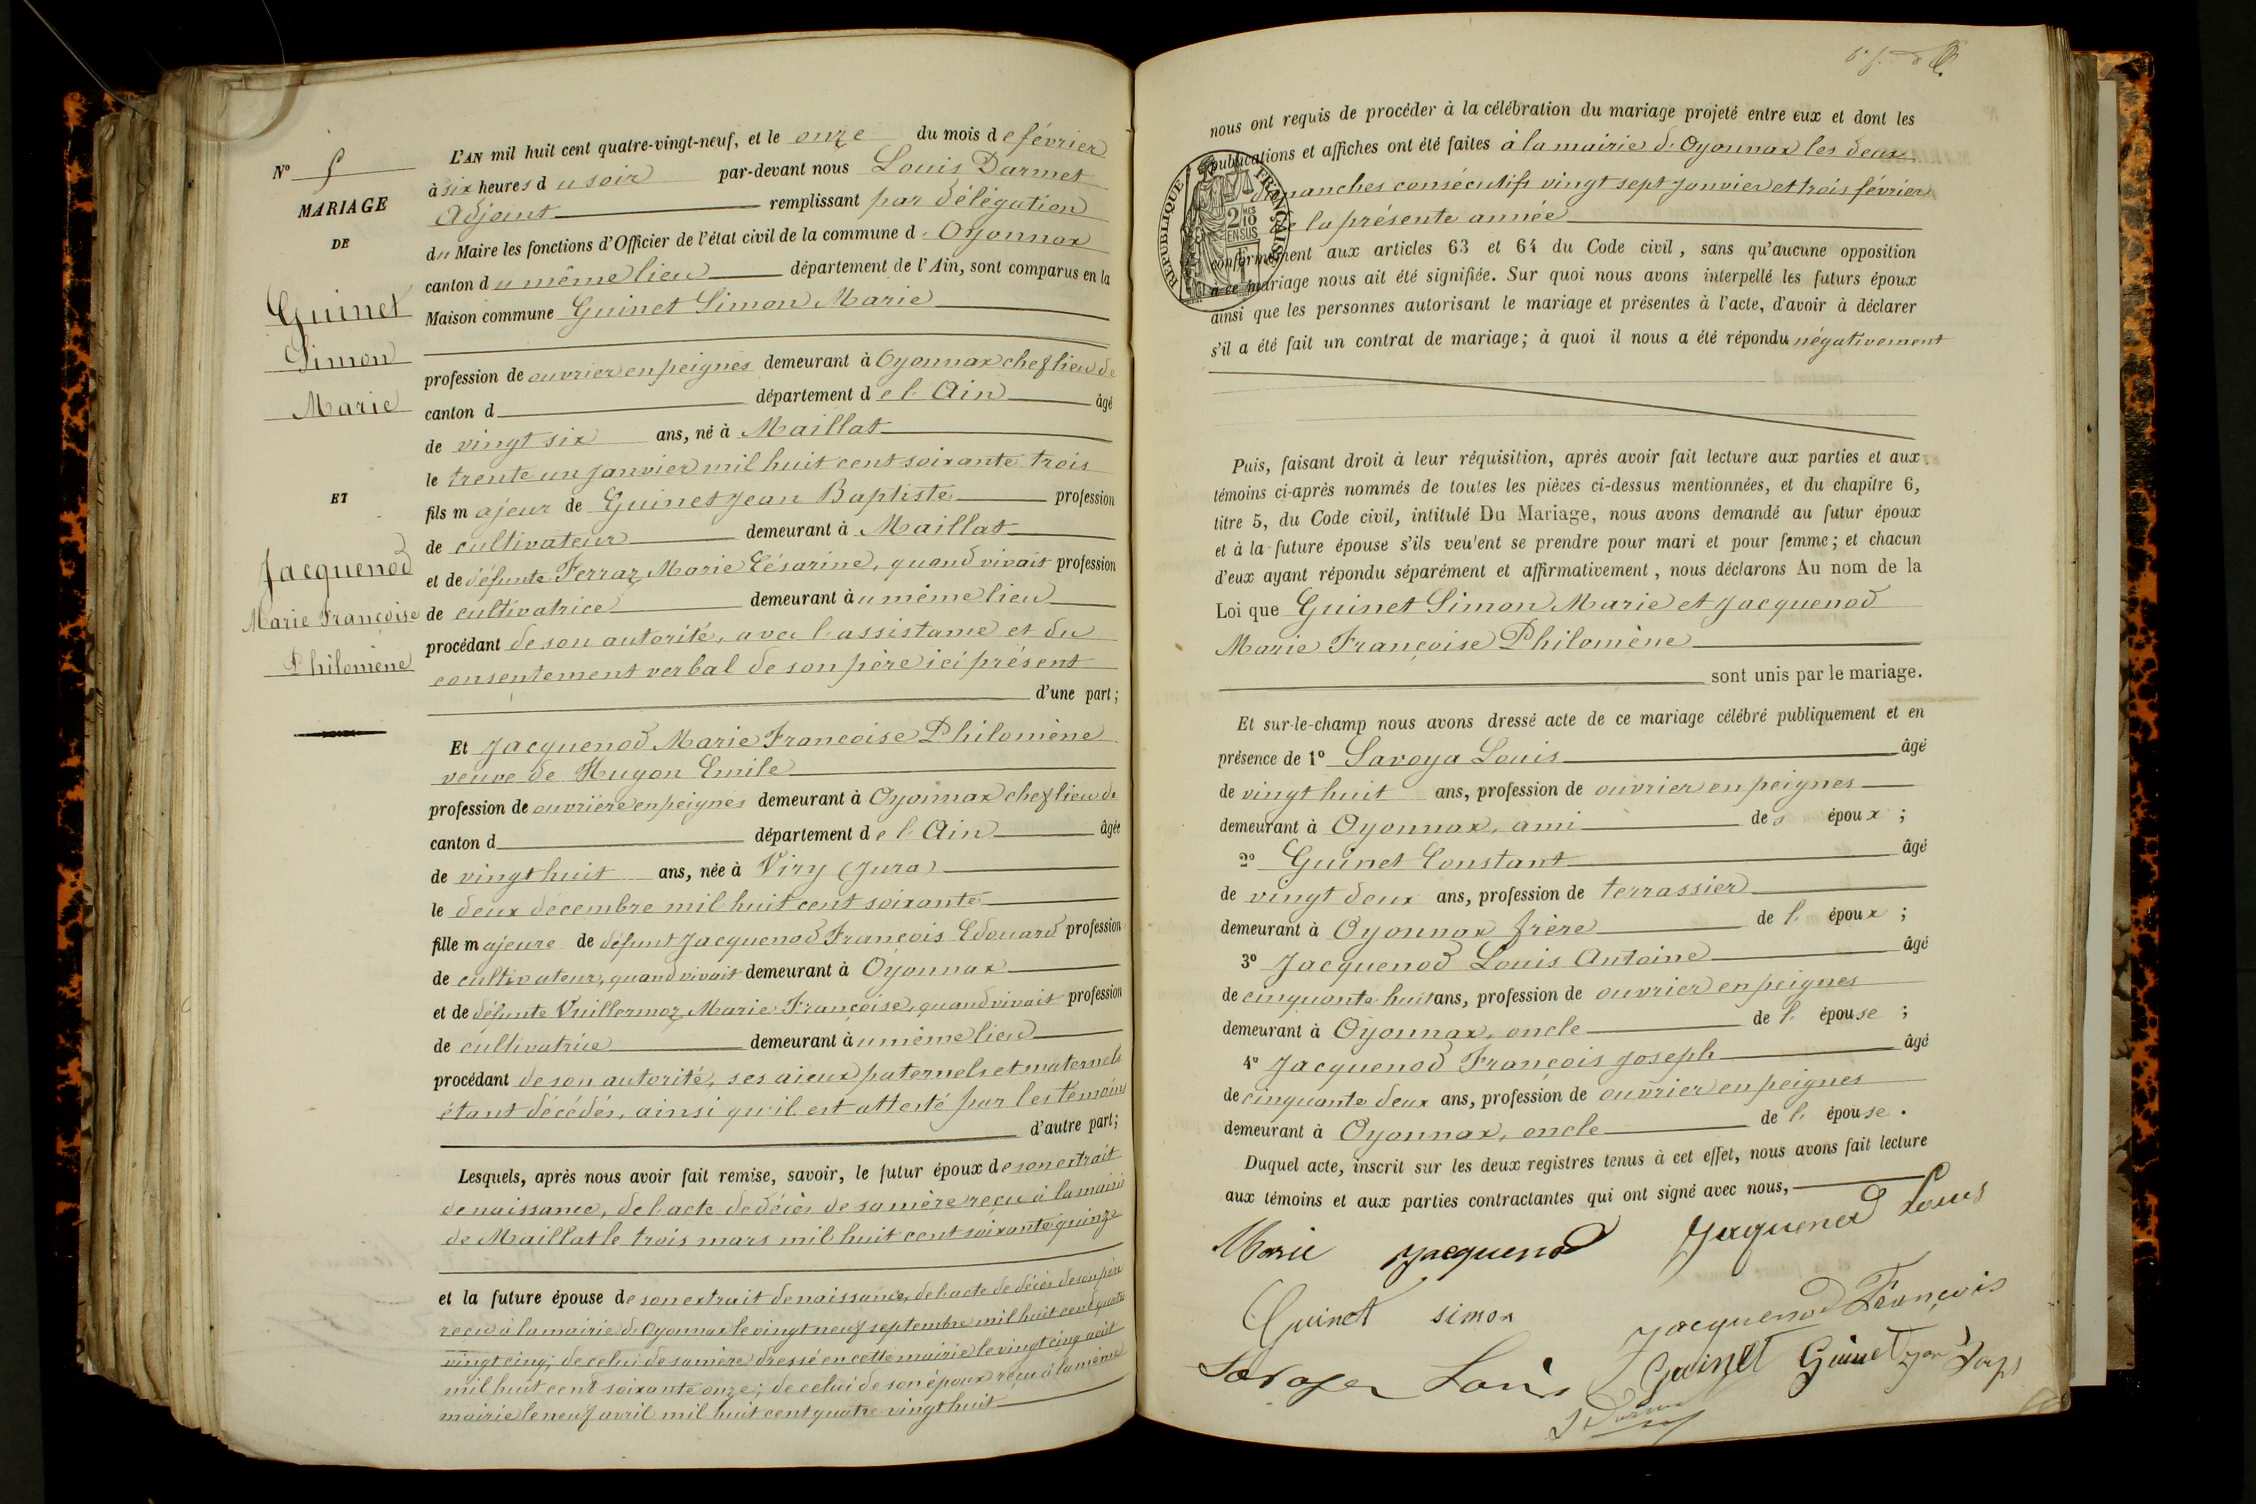 Nº 5
MARIAGE
DE
Guinet
Simon
Marie
ET
Jacquenod
Marie Françoise
Philomène
L'AN mil huit cent quatre-vingt-neuf, et le onze du mois de février
à six heures du soir par-devant nous Louis Darmet
Adjoint remplissant par délégation
du Maire les fonctions d'Officier de l'état civil de la commune d'Oyonnax
canton du même lieu département de l'Ain, sont comparus en la
Maison commune Guinet Simon Marie
profession de ouvrier en peignes demeurant à Oyonnax chef lieu de
canton d département de l'Ain âgé
de vingt six ans, né à Maillat
le trente un janvier mil huit cent soixante trois
fils majeur de Guinet Jean Baptiste profession
de cultivateur demeurant à Maillat
et de défunte Ferraz Marie Césarine, quand vivait profession
de cultivatrice demeurant au même lieu
procédant de son autorité, avec l'assistance et du
consentement verbal de son père ici présent
d'une part;
Et Jacquenod Marie Françoise Philomène
veuve de Hugon Emile
profession de ouvrière en peignes demeurant à Oyonnax chef lieu de
canton d département de l'Ain âgée
de vingt huit ans, née à Viry (Jura)
le deux décembre mil huit cent soixante
fille majeure de défunt Jacquenod François Edouard profession
de cultivateur, quand vivait demeurant à Oyonnax
et de défunte Vuillermoz Marie Françoise, quand vivait profession
de cultivatrice demeurant au même lieu
procédant de son autorité, ses aieux paternels et maternels
étant décédés, ainsi qu'il est attesté par les témoins
d'autre part;
Lesquels, après nous avoir fait remise, savoir, le futur époux de son extrait
de naissance, de l'acte de décès de sa mère reçu à la mairie
de Maillat le trois mars mil huit cent soixante quinze
et la future épouse de son extrait de naissance, de l'acte de décès de son père
reçu à la mairie d'Oyonnax le vingt neuf septembre mil huit cent quatre
vingt cinq; de celui de sa mère dressé en cette mairie le vingt cinq août
mil huit cent soixante onze; de celui de son époux reçu à la même
mairie le neuf avril mil huit cent quatre vingt huit
nous ont requis de procéder à la célébration du mariage projeté entre eux et dont les
publications et affiches ont été faites à la mairie d'Oyonnax les deux
dimanches consécutifs vingt sept janvier et trois février
de la présente année
RÉPUBLIQUE FRANÇAISE
2/10 EN SUS
conformément aux articles 63 et 64 du Code civil, sans qu'aucune opposition
à ce mariage nous ait été signifiée. Sur quoi nous avons interpellé les futurs époux
ainsi que les personnes autorisant le mariage et présentes à l'acte, d'avoir à déclarer
s'il a été fait un contrat de mariage; à quoi il nous a été répondu négativement
Puis, faisant droit à leur réquisition, après avoir fait lecture aux parties et aux
témoins ci-après nommés de toutes les pièces ci-dessus mentionnées, et du chapitre 6,
titre 5, du Code civil, intitulé Du Mariage, nous avons demandé au futur époux
et à la future épouse s'ils veulent se prendre pour mari et pour femme; et chacun
d'eux ayant répondu séparément et affirmativement, nous déclarons Au nom de la
Loi que Guinet Simon Marie et Jacquenod
Marie Françoise Philomène
sont unis par le mariage.
Et sur-le-champ nous avons dressé acte de ce mariage célébré publiquement et en
présence de 1º Savoya Louis âgé
de vingt huit ans, profession de ouvrier en peignes
demeurant à Oyonnax, ami des époux;
2º Guinet Constant âgé
de vingt deux ans, profession de terrassier
demeurant à Oyonnax frère de l'époux;
3º Jacquenod Louis Antoine âgé
de cinquante huit ans, profession de ouvrier en peignes
demeurant à Oyonnax, oncle de l'épouse;
4º Jacquenod François Joseph âgé
de cinquante deux ans, profession de ouvrier en peignes
demeurant à Oyonnax, oncle de l'épouse.
Duquel acte, inscrit sur les deux registres tenus à cet effet, nous avons fait lecture
aux témoins et aux parties contractantes qui ont signé avec nous,
Marie Jacquenod Jacquenod Louis
Guinet simon Jacquenod François
Savoya Louis Guinet Guinet
L Darmet